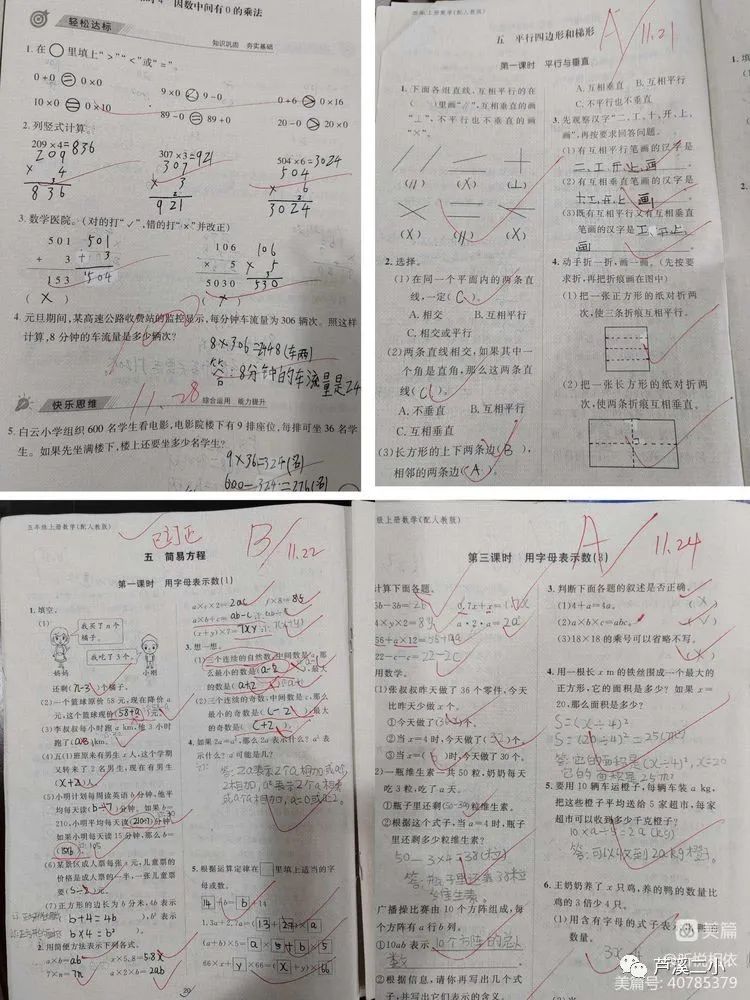 因数中间有0的乘法
轻松达标
知识巩固 夯实基础
1. 在○里填上“>”“<”或“=”。
0+0 = 0×0
9×0 < 9-0
0+6 > 0×16
10×0 = 0×10
89-0 = 89+0
20-0 > 20×0
2. 列竖式计算。
209×4=836
307×3=921
504×6=3024
209
307
504
× 4
× 3
× 6
836
921
3024
3. 数学医院。(对的打“√”,错的打“×”并改正)
501
501
106
106
+ 3
+ 3
× 5
× 5
153
504
5030
530
( X )
( X )
4. 元旦期间,某高速公路收费站的监控显示,每分钟车流量为306辆次。照这样
计算,8分钟的车流量是多少辆次?
8×306=2448(车两)
答:8分钟的车流量是24
11.28
快乐思维
综合运用 能力提升
5. 白云小学组织600名学生看电影,电影院楼下有9排座位,每排可坐36名学
生。如果先坐满楼下,楼上还要坐多少名学生?
9×36=324(名)
600-324=276(名)
四年级上册数学(配人教版)
A 11.21
五 平行四边形和梯形
第一课时 平行与垂直
1. 下面各组直线,互相平行的在
( )里画“//”,互相垂直的画
“⊥”,不平行也不垂直的画
“×”。
(//) (X) (⊥)
(X) (//) (X)
2. 选择。
(1)在同一个平面内的两条直
线,一定( C )。
A. 相交 B. 互相平行
C. 相交或平行
(2)两条直线相交,如果其中一
个角是直角,那么这两条直
线( C )。
A. 不垂直 B. 互相平行
C. 互相垂直
(3)长方形的上下两条边( B ),
相邻的两条边( A )。
A. 互相垂直 B. 互相平行
C. 不平行也不垂直
3. 先观察汉字“二、工、十、开、上、
画”,再按要求回答问题。
(1)有互相平行笔画的汉字是
二、工、开、上、画。
(2)有互相垂直笔画的汉字是
十、工、开、上、画。
(3)既有互相平行又有互相垂直
笔画的汉字是工、开、上、
画。
4. 动手折一折,画一画。(先按要
求折,再把折痕画在图中)
(1)把一张正方形的纸对折两
次,使三条折痕互相平行。
(2)把一张长方形的纸对折两
次,使两条折痕互相垂直。
五年级上册数学(配人教版)
已订正
B 11.22
五 简易方程
第一课时 用字母表示数(1)
1. 填空。
(1)
我买了n个
橘子。
我吃了3个。
妈妈
小明
还剩( n-3 )个橘子。
(2)一个篮球原价58元,现在降价a
元,这个篮球现价(58+a)元。
(3)李叔叔每小时跑a km,他3小时
跑了( )km。
(4)五(1)班原来有男生x人,这个学期
又转来了2名男生,现在有男生
( x+2 )人。
(5)小明计划每周读英语b分钟,他平
均每天读( b÷7 )分钟。如果b=
210,小明平均每天读(210÷7)分钟。
如果小明每天读15分钟,那么b=
(6)某景区成人票每张s元,儿童票的
价格是成人票的一半,一张儿童票
要( s÷2 )元。
(7)正方形的边长为b分米,4b表示
b+4=4b
,b²表示
b×4=b²
2. 用简便方法表示下列各式。
a×b=ab
x×5.8=5.8x
7×n=7n
a×2×b=2ab
a×c×2=2ac
x×8=8x
3. 想一想。
(1)三个连续的自然数,中间数是a,那
么最小的数是( a-2 ),最大
的数是( a+2 )。
(2)三个连续的奇数,中间数是c,那么
最小的奇数是( c-2 ),最大
的奇数是( c+2 )。
4. 如果2a=a²,那么2a表示什么?a²表
示什么?a可能是几?
答:2a表示2个a相加或a与
2相加,a²表示2个a相乘
或a个a相加,a=0或a=2。
5. 根据运算定律在□里填上适当的字
母或数。
20
级上册数学(配人教版)
A 11.24
第三课时 用字母表示数(3)
计算下面各题。
5b-3b=2b
4×y×2=8y
a·2·a=2a²
22-c-c=22-2c
用数学。
(1)张叔叔昨天做了36个零件,今天
比昨天少做x个。
①今天做了( )个。
②当x=4时,今天做了(32)个。
③当x=( 6 )时,今天做了30个。
(2)一瓶维生素一共50粒,奶奶每天
吃3粒,吃了a天。
①瓶子里还剩(50-3a)粒维生素。
②根据这个式子,当a=4时,瓶子
里还剩多少粒维生素?
50-3×4=38(粒)
答:瓶子里还剩38粒
维生素。
广播操比赛由10个方阵组成,每
个方阵有a行b列。
①10ab表示10个方阵的总人
数
②根据信息,请你再写出几个式
子,并写出它们表示的含义。
3. 判断下面各题的叙述是否正确。
(1)4+a=4a。
(2)a×b×c=abc。
(3)18×18的乘号可以省略不写。
4. 用一根长x m的铁丝围成一个最大的
正方形,它的面积是多少?如果x=
20,那么面积是多少?
S=(x÷4)²
S=(20÷4)²=25(m²)
答:它的面积是(x÷4)²,x=20
它的面积是25m²
5. 要用10辆车运橙子,每辆车装a kg,
把这些橙子平均送给5家超市,每家
超市可以收到多少千克橙子?
10×a÷5=2a(kg)
答:可以收到2akg橙子。
6. 王奶奶养了x只鸡,养的鸭的数量比
鸡的3倍少4只。
(1)用含有字母的式子表示鸭的
数量。
美篇
芦溪二小
美篇号: 40785379